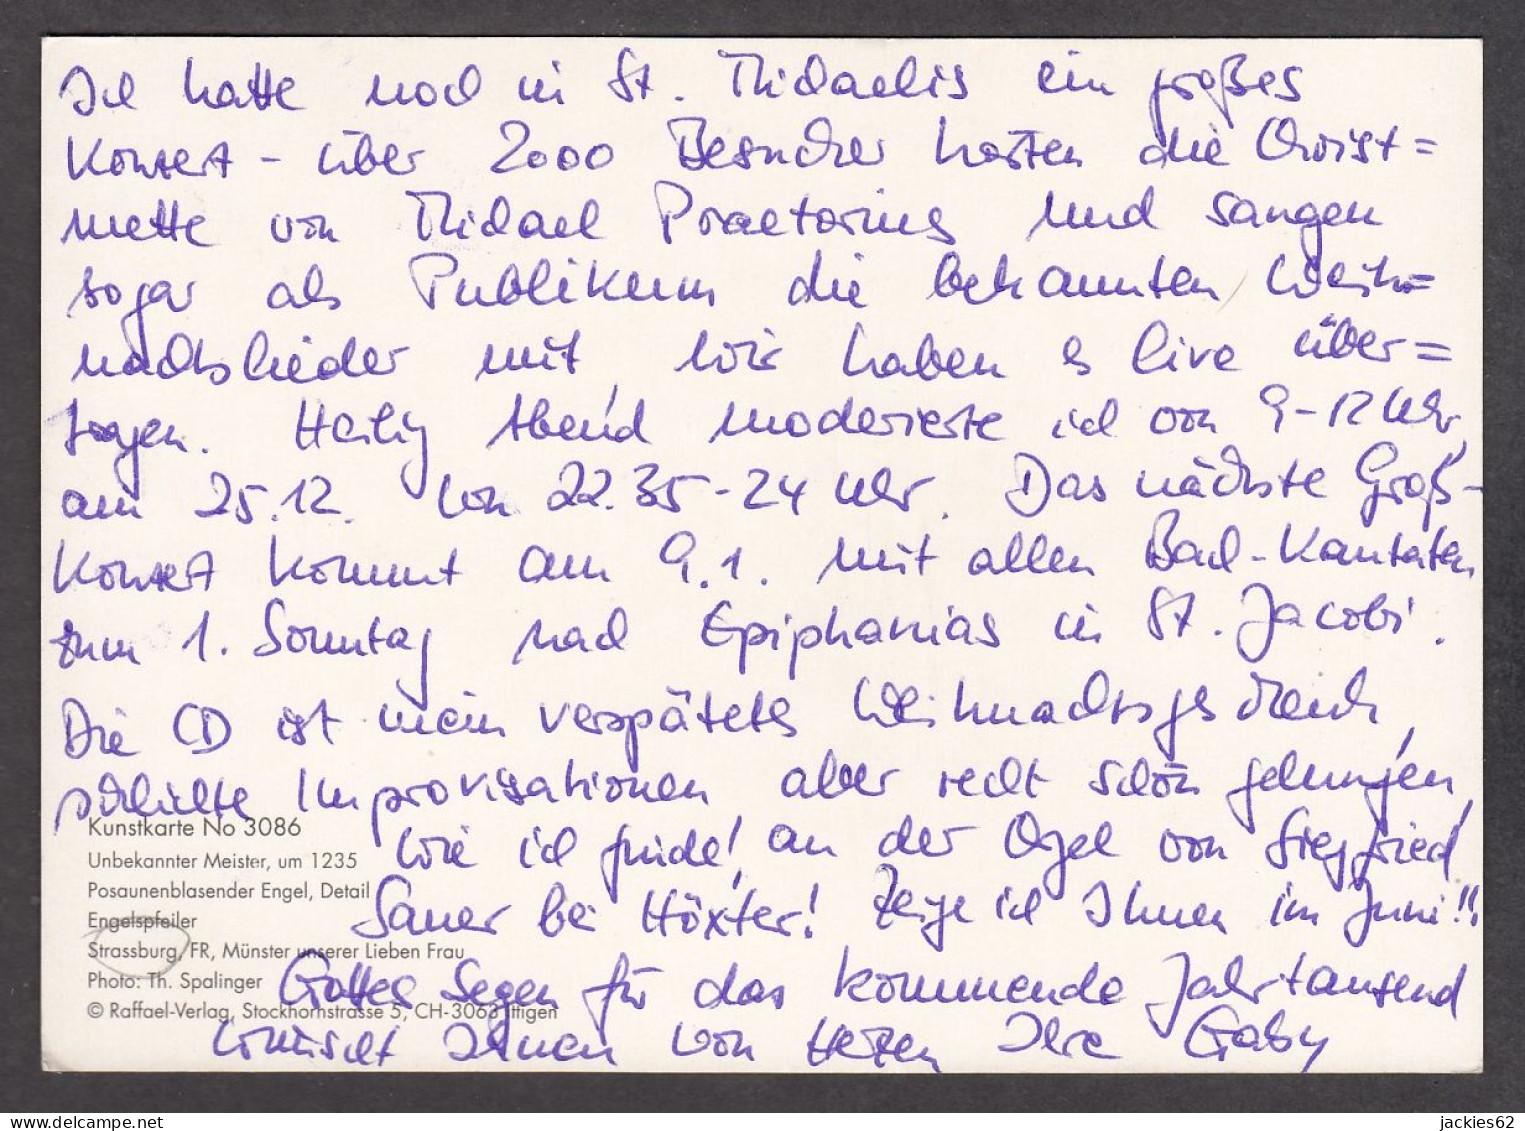 Ich hatte noch in St. Michaelis ein großes
Konzert - über 2000 Besucher hörten die Christ=
mette von Michael Praetorius und sangen
sogar als Publikum die bekannten Weih=
nachtslieder mit, wir haben es live über=
tragen. Heilig Abend moderierte ich von 9-12 Uhr,
am 25.12. von 22.35-24 Uhr. Das nächste Groß-
Konzert kommt am 9.1. mit allen Bach-Kantaten
zum 1. Sonntag nach Epiphanias in St. Jacobi.
Die CD ist mein verspätetes Weihnachtsgeschenk,
schlichte Improvisationen, aber recht schön gelungen,
wie ich finde!, an der Orgel von Siegfried
Sauer bei Höxter! Zeige ich Ihnen im Juni!!
Gottes Segen für das kommende Jahrtausend
wünscht Ihnen von Herzen Ihre Gaby
Kunstkarte No 3086
Unbekannter Meister, um 1235
Posaunenblasender Engel, Detail
Engelspfeiler
Strassburg, FR, Münster unserer Lieben Frau
Photo: Th. Spalinger
© Raffael-Verlag, Stockhornstrasse 5, CH-3063 Ittigen
delcampe.net
jackies62